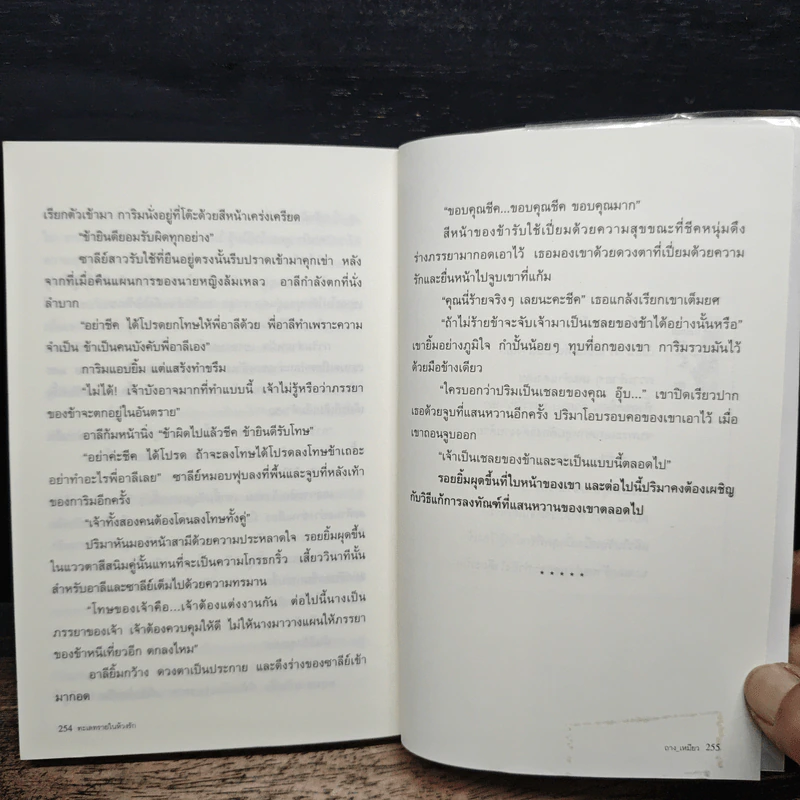 เรียกตัวเข้ามา การิมนั่งอยู่ที่โต๊ะด้วยสีหน้าเคร่งเครียด
“ข้ายินดียอมรับผิดทุกอย่าง”
ซาลีย์สาวรับใช้ที่ยืนอยู่ตรงนั้นรีบปราดเข้ามาคุกเข่า หลัง
จากที่เมื่อคืนแผนการของนายหญิงล้มเหลว อาลีกำลังตกที่นั่ง
ลำบาก
“อย่าชีค ได้โปรดยกโทษให้พี่อาลีด้วย พี่อาลีทำเพราะความ
จำเป็น ข้าเป็นคนบังคับพี่อาลีเอง”
การิมแอบยิ้ม แต่แสร้งทำขรึม
“ไม่ได้! เจ้าบังอาจมากที่ทำแบบนี้ เจ้าไม่รู้หรือว่าภรรยา
ของข้าจะตกอยู่ในอันตราย”
อาลีก้มหน้านิ่ง “ข้าผิดไปแล้วชีค ข้ายินดีรับโทษ”
“อย่าค่ะชีค ได้โปรด ถ้าจะลงโทษได้โปรดลงโทษข้าเถอะ
อย่าทำอะไรพี่อาลีเลย” ซาลีย์หมอบฟุบลงที่พื้นและจูบที่หลังเท้า
ของการิมอีกครั้ง
“เจ้าทั้งสองคนต้องโดนลงโทษทั้งคู่”
ปริมาหันมองหน้าสามีด้วยความประหลาดใจ รอยยิ้มผุดขึ้น
ในแววตาสีสนิมคู่นั้นแทนที่จะเป็นความโกรธกริ้ว เสี้ยววินาทีนั้น
สำหรับอาลีและซาลีย์เต็มไปด้วยความทรมาน
“โทษของเจ้าคือ...เจ้าต้องแต่งงานกัน ต่อไปนี้นางเป็น
ภรรยาของเจ้า เจ้าต้องควบคุมให้ดี ไม่ให้นางมาวางแผนให้ภรรยา
ของข้าหนีเที่ยวอีก ตกลงไหม”
อาลียิ้มกว้าง ดวงตาเป็นประกาย และดึงร่างของซาลีย์เข้า
มากอด
254 ทะเลทรายในห้วงรัก
“ขอบคุณชีค...ขอบคุณชีค ขอบคุณมาก”
สีหน้าของข้ารับใช้เปี่ยมด้วยความสุขขณะที่ชีคหนุ่มดึง
ร่างภรรยามากอดเอาไว้ เธอมองเขาด้วยดวงตาที่เปี่ยมด้วยความ
รักและยื่นหน้าไปจูบเขาที่แก้ม
“คุณนี่ร้ายจริงๆ เลยนะคะชีค” เธอแกล้งเรียกเขาเต็มยศ
“ถ้าไม่ร้ายข้าจะจับเจ้ามาเป็นเชลยของข้าได้อย่างนั้นหรือ”
เขายิ้มอย่างภูมิใจ กำปั้นน้อยๆ ทุบที่อกของเขา การิมรวบมันไว้
ด้วยมือข้างเดียว
“ใครบอกว่าปริมเป็นเชลยของคุณ อุ๊บ...” เขาปิดเรียวปาก
เธอด้วยจูบที่แสนหวานอีกครั้ง ปริมาโอบรอบคอของเขาเอาไว้ เมื่อ
เขาถอนจูบออก
“เจ้าเป็นเชลยของข้าและจะเป็นแบบนี้ตลอดไป”
รอยยิ้มผุดขึ้นที่ใบหน้าของเขา และต่อไปนี้ปริมาคงต้องเผชิญ
กับวิธีแก้การลงทัณฑ์ที่แสนหวานของเขาตลอดไป
* * * * *
ถาง_เหมียว 255